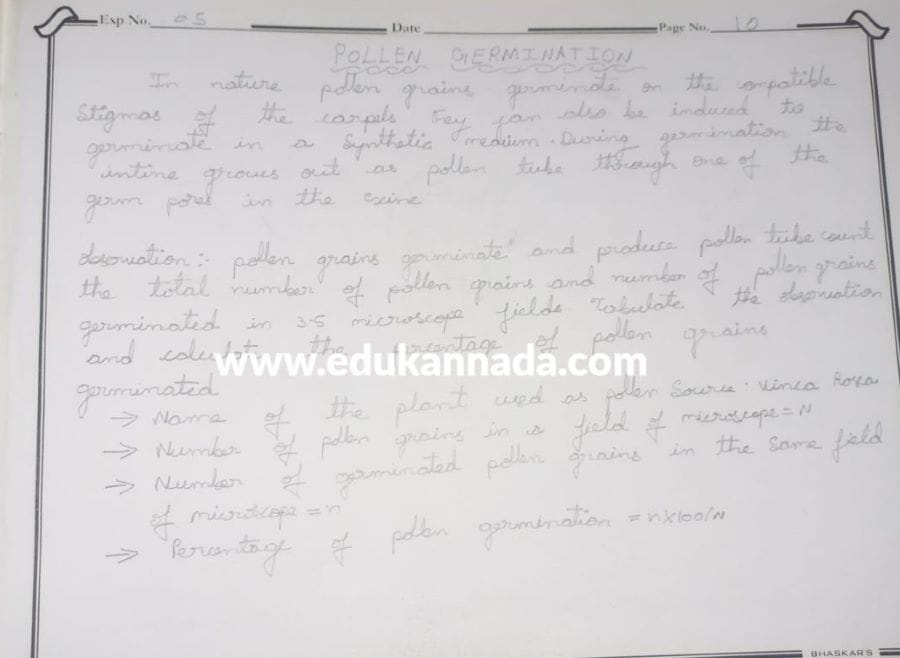 Exp No. 05 Date Page No. 10
POLLEN GERMINATION
In nature pollen grains germinate on the compatible
Stigmas of the carpels they can also be induced to
germinate in a Synthetic medium. During germination the
intine grows out as pollen tube through one of the
germ pores in the exine
observation:- pollen grains germinate and produce pollen tube count
the total number of pollen grains and number of pollen grains
germinated in 3-5 microscope fields Tabulate the observation
and calculate the percentage of pollen grains
www.edukannada.com
germinated
→ Name of the plant used as pollen Source: Vinca Rosea
→ Number of pollen grains in a field of microscope = N
→ Number of germinated pollen grains in the Same field
of microscope = n
→ Percentage of pollen germination = n×100/N
BHASKAR'S